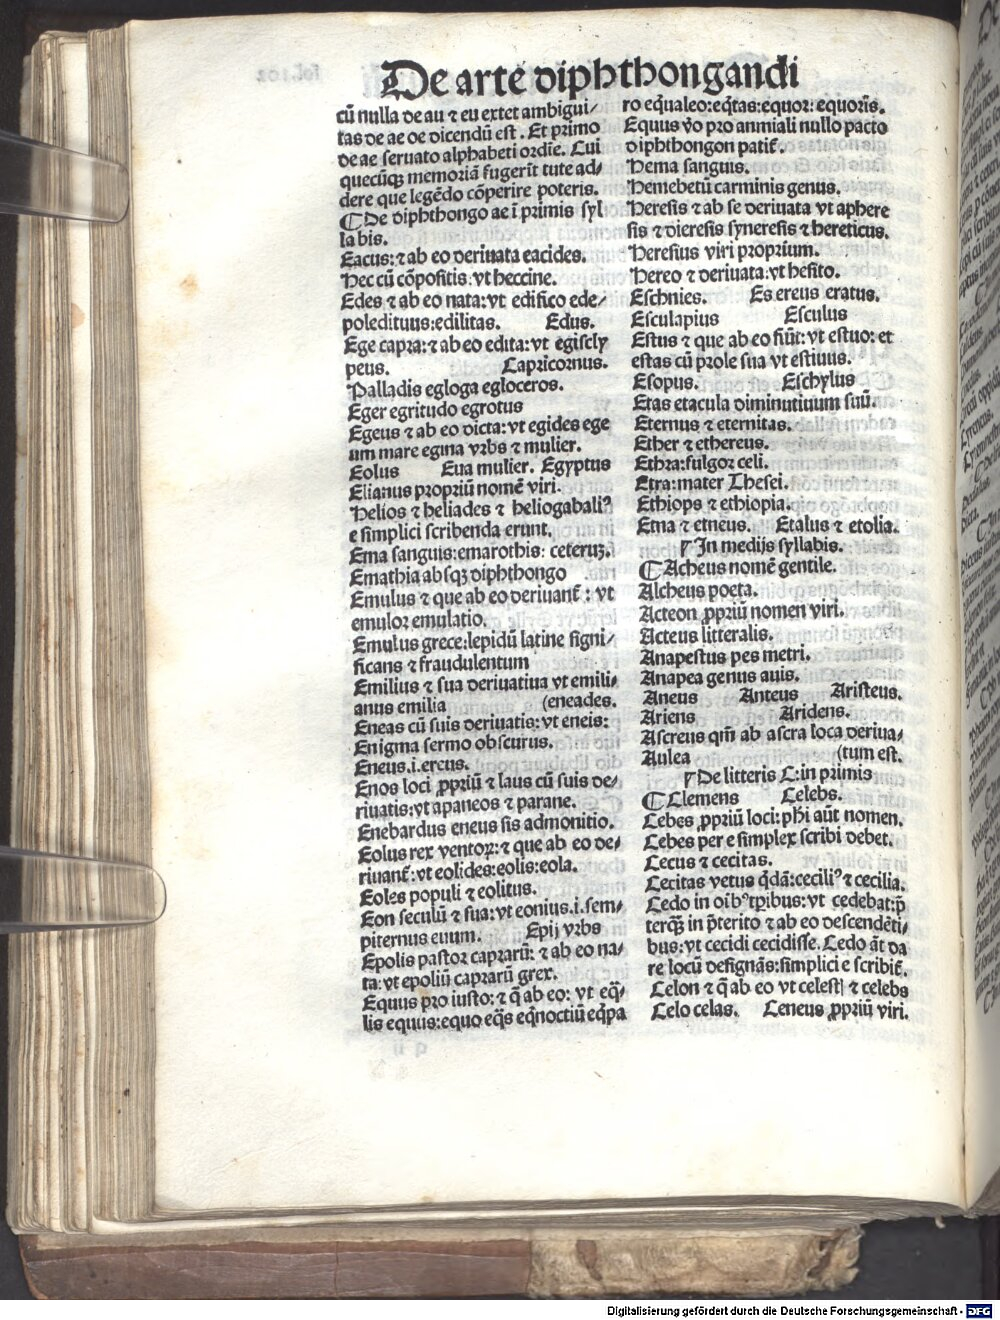 De arte diphthongandi
cū nulla de au ⁊ eu extet ambigui/
tas de ae oe dicendū est. Et primo
de ae seruato alphabeti ordīe. Cui
quecūqꝫ memoriā fugerīt tute ad/
dere que legēdo cōperire poteris.
¶ De diphthongo ae ī primis syl
labis.
Eacus: ⁊ ab eo deriuata eacides.
Hec cū cōpositis: vt heccine.
Edes ⁊ ab eo nata: vt edifico ede/
poledituus: edilitas. Edus.
Ege capra: ⁊ ab eo edita: vt egiscly
peus. Capricornus.
Palladis egloga egloceros.
Eger egritudo egrotus
Egeus ⁊ ab eo dicta: vt egides ege
um mare egina vrbs ⁊ mulier.
Eolus Eua mulier. Egyptus
Elianus propriū nomē viri.
Helios ⁊ heliades ⁊ heliogabaliꝰ
e simplici scribenda erunt.
Ema sanguis: emarothis: ceteruꝫ.
Emathia absqꝫ diphthongo
Emulus ⁊ que ab eo deriuant̄: vt
emulor emulatio.
Emulus grece: lepidū latine signi/
ficans ⁊ fraudulentum
Emilius ⁊ sua deriuatiua vt emili/
anus emilia (eneades.
Eneas cū suis deriuatis: vt eneis:
Enigma sermo obscurus.
Eneus .i. ercus.
Enos loci ꝓpriū ⁊ laus cū suis de/
riuatis: vt apaneos ⁊ parane.
Enebardus eneus sis admonitio.
Eolus rex ventoꝝ: ⁊ que ab eo de/
riuant̄: vt eolides: eolis: eola.
Eoles populi ⁊ eolitus.
Eon seculū ⁊ sua: vt eonius .i. sem/
piternus euum. Epij vrbs
Epolis pastor caprarū: ⁊ ab eo na/
ta: vt epoliū caprarū grex.
Equus pro iusto: ⁊ q̄ ab eo: vt eq̄/
lis equus: equo eq̄s eq̄noctiū eq̄pa
ro eq̄ualeo: eq̄tas: equor: equoris.
Equus v̄o pro anmiali nullo pacto
diphthongon patit̄.
Hema sanguis.
Hemebetū carminis genus.
Heresis ⁊ ab se deriuata vt aphere
sis ⁊ dieresis syneresis ⁊ hereticus.
Heresius viri proprium.
Hereo ⁊ deriuata: vt hesito.
Eschnies. Es ereus eratus.
Esculapius Esculus
Estus ⁊ que ab eo fiūt: vt estuo: et
estas cū prole sua vt estiuus.
Esopus. Eschylus
Etas etacula diminutiuum suū.
Eternus ⁊ eternitas.
Ether ⁊ ethereus.
Ethra: fulgor celi.
Etra: mater Thesei.
Ethiops ⁊ ethiopia.
Etna ⁊ etneus. Etalus ⁊ etolia.
In medijs syllabis.
¶ Acheus nomē gentile.
Alcheus poeta.
Acteon ꝓpriū nomen viri.
Acteus litteralis.
Anapestus pes metri.
Anapea genus auis.
Aneus Anteus Aristeus.
Ariens Aridens.
Ascreus qm̄ ab ascra loca deriua/
Aulea (tum est.
De litteris C: in primis
¶ Clemens Celebs.
Cebes ꝓpriū loci: ph̄i aūt nomen.
Cebes per e simplex scribi debet.
Cecus ⁊ cecitas.
Cecitas vetus q̄dā: ceciliꝰ ⁊ cecilia.
Cedo in oībꝰ tp̄ibus: vt cedebat: p̄
terq̄ꝫ in p̄terito ⁊ ab eo descendēti/
bus: vt cecidi cecidisse. Cedo āt da
re locū designās: simplici e scribit̄.
Celon ⁊ q̄ ab eo vt celestꝭ ⁊ celebs
Celo celas. Ceneus ꝓpriū viri.
Digitalisierung gefördert durch die Deutsche Forschungsgemeinschaft - DFG